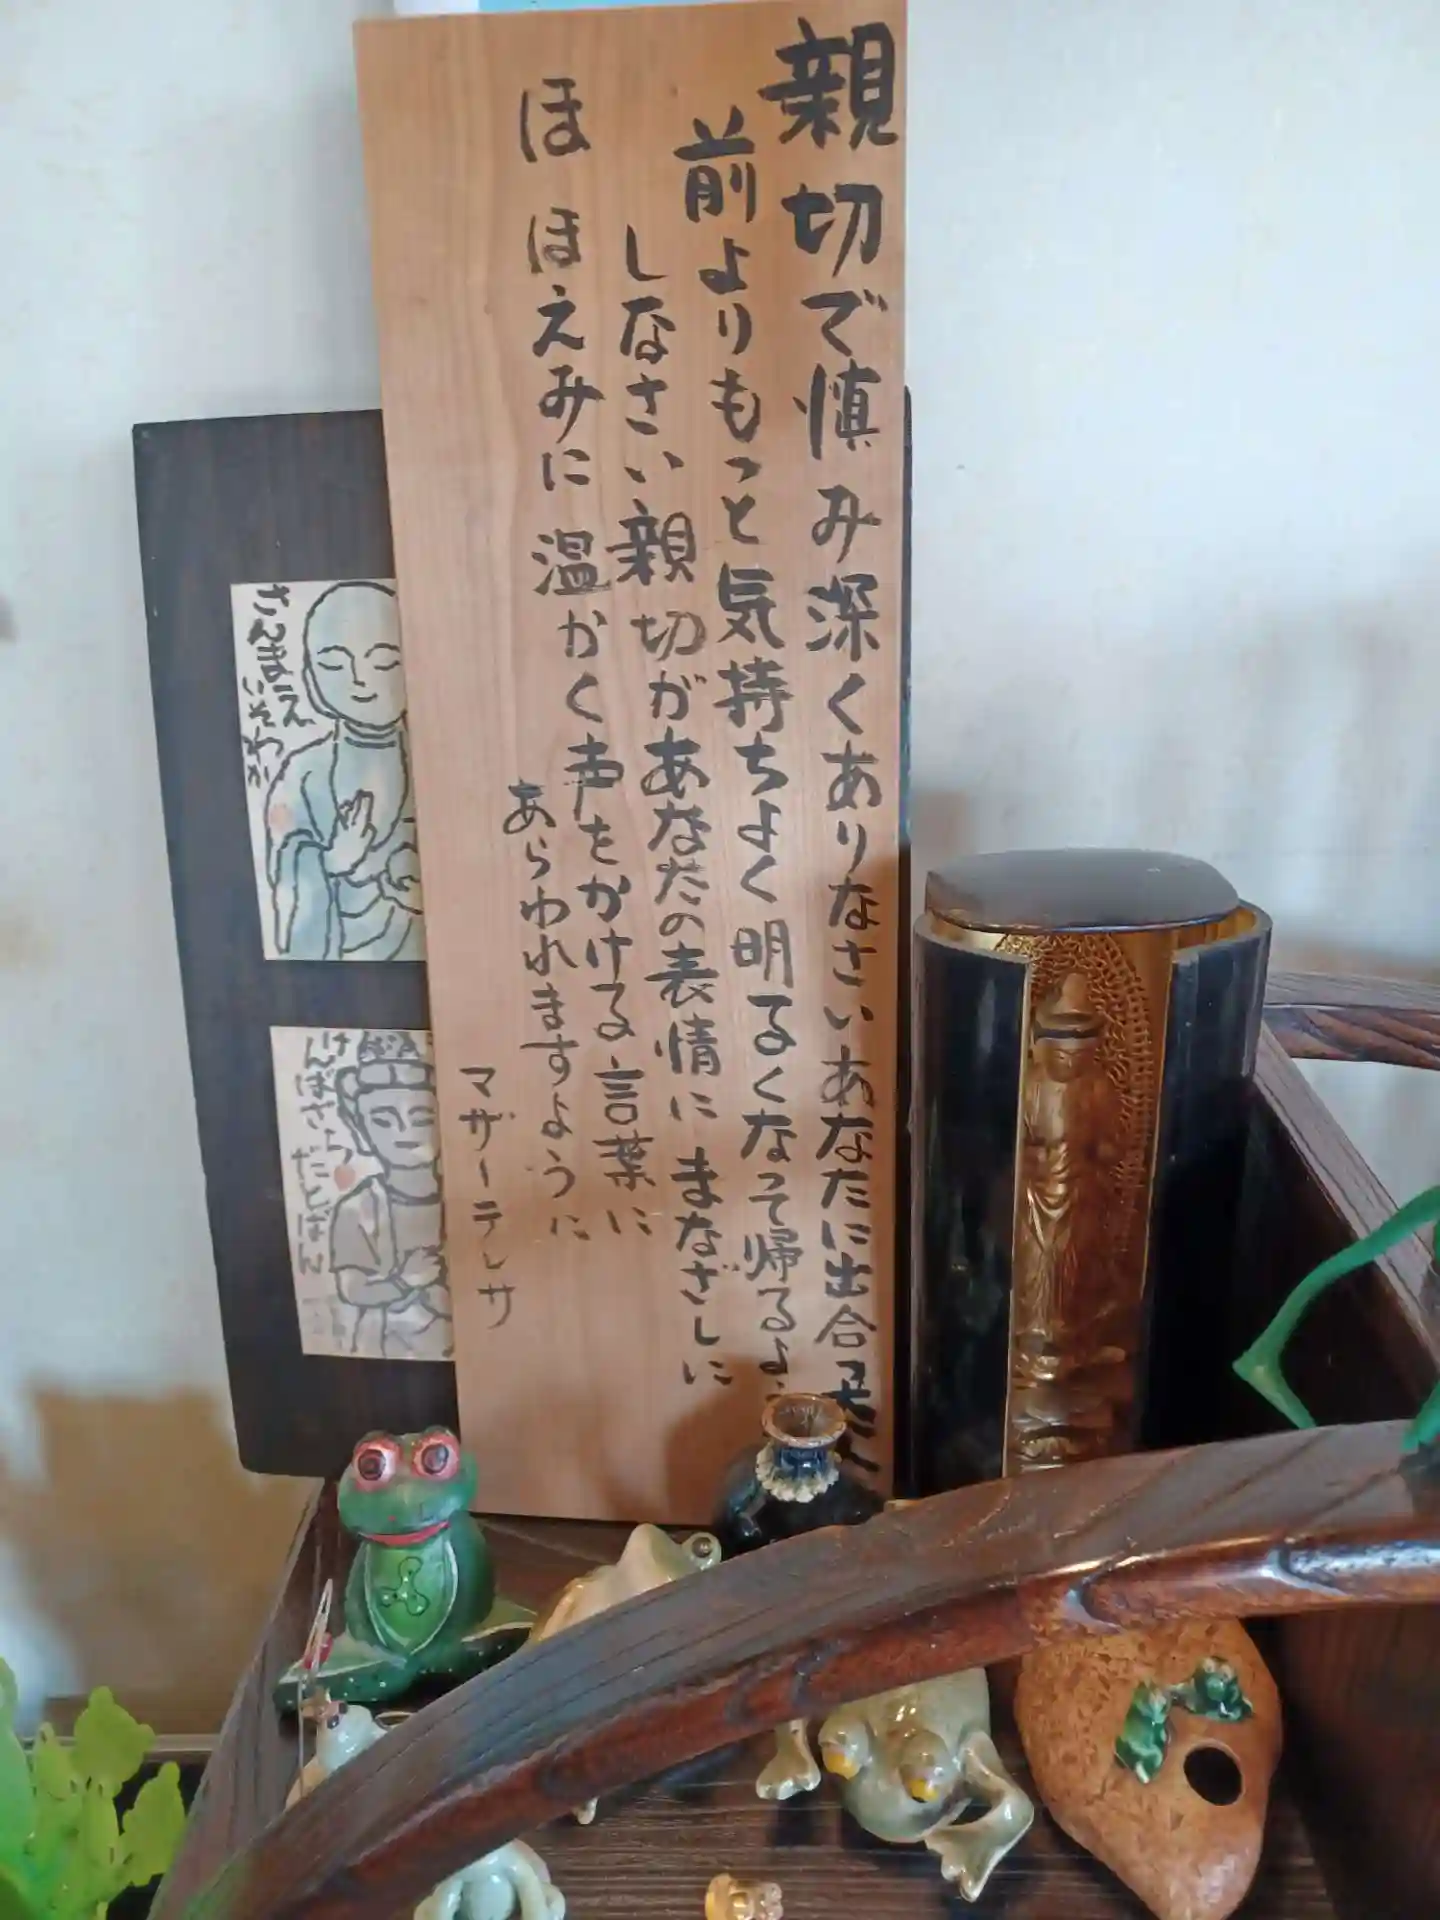 親切で慎み深くありなさいあなたに出合った
前よりもっと気持ちよく明るくなって帰るよ
しなさい親切があなたの表情にまなざしに
ほほえみに温かく声をかける言葉に
ほ
あらわれますように
マザーテレサ
さんまえん
いそわか